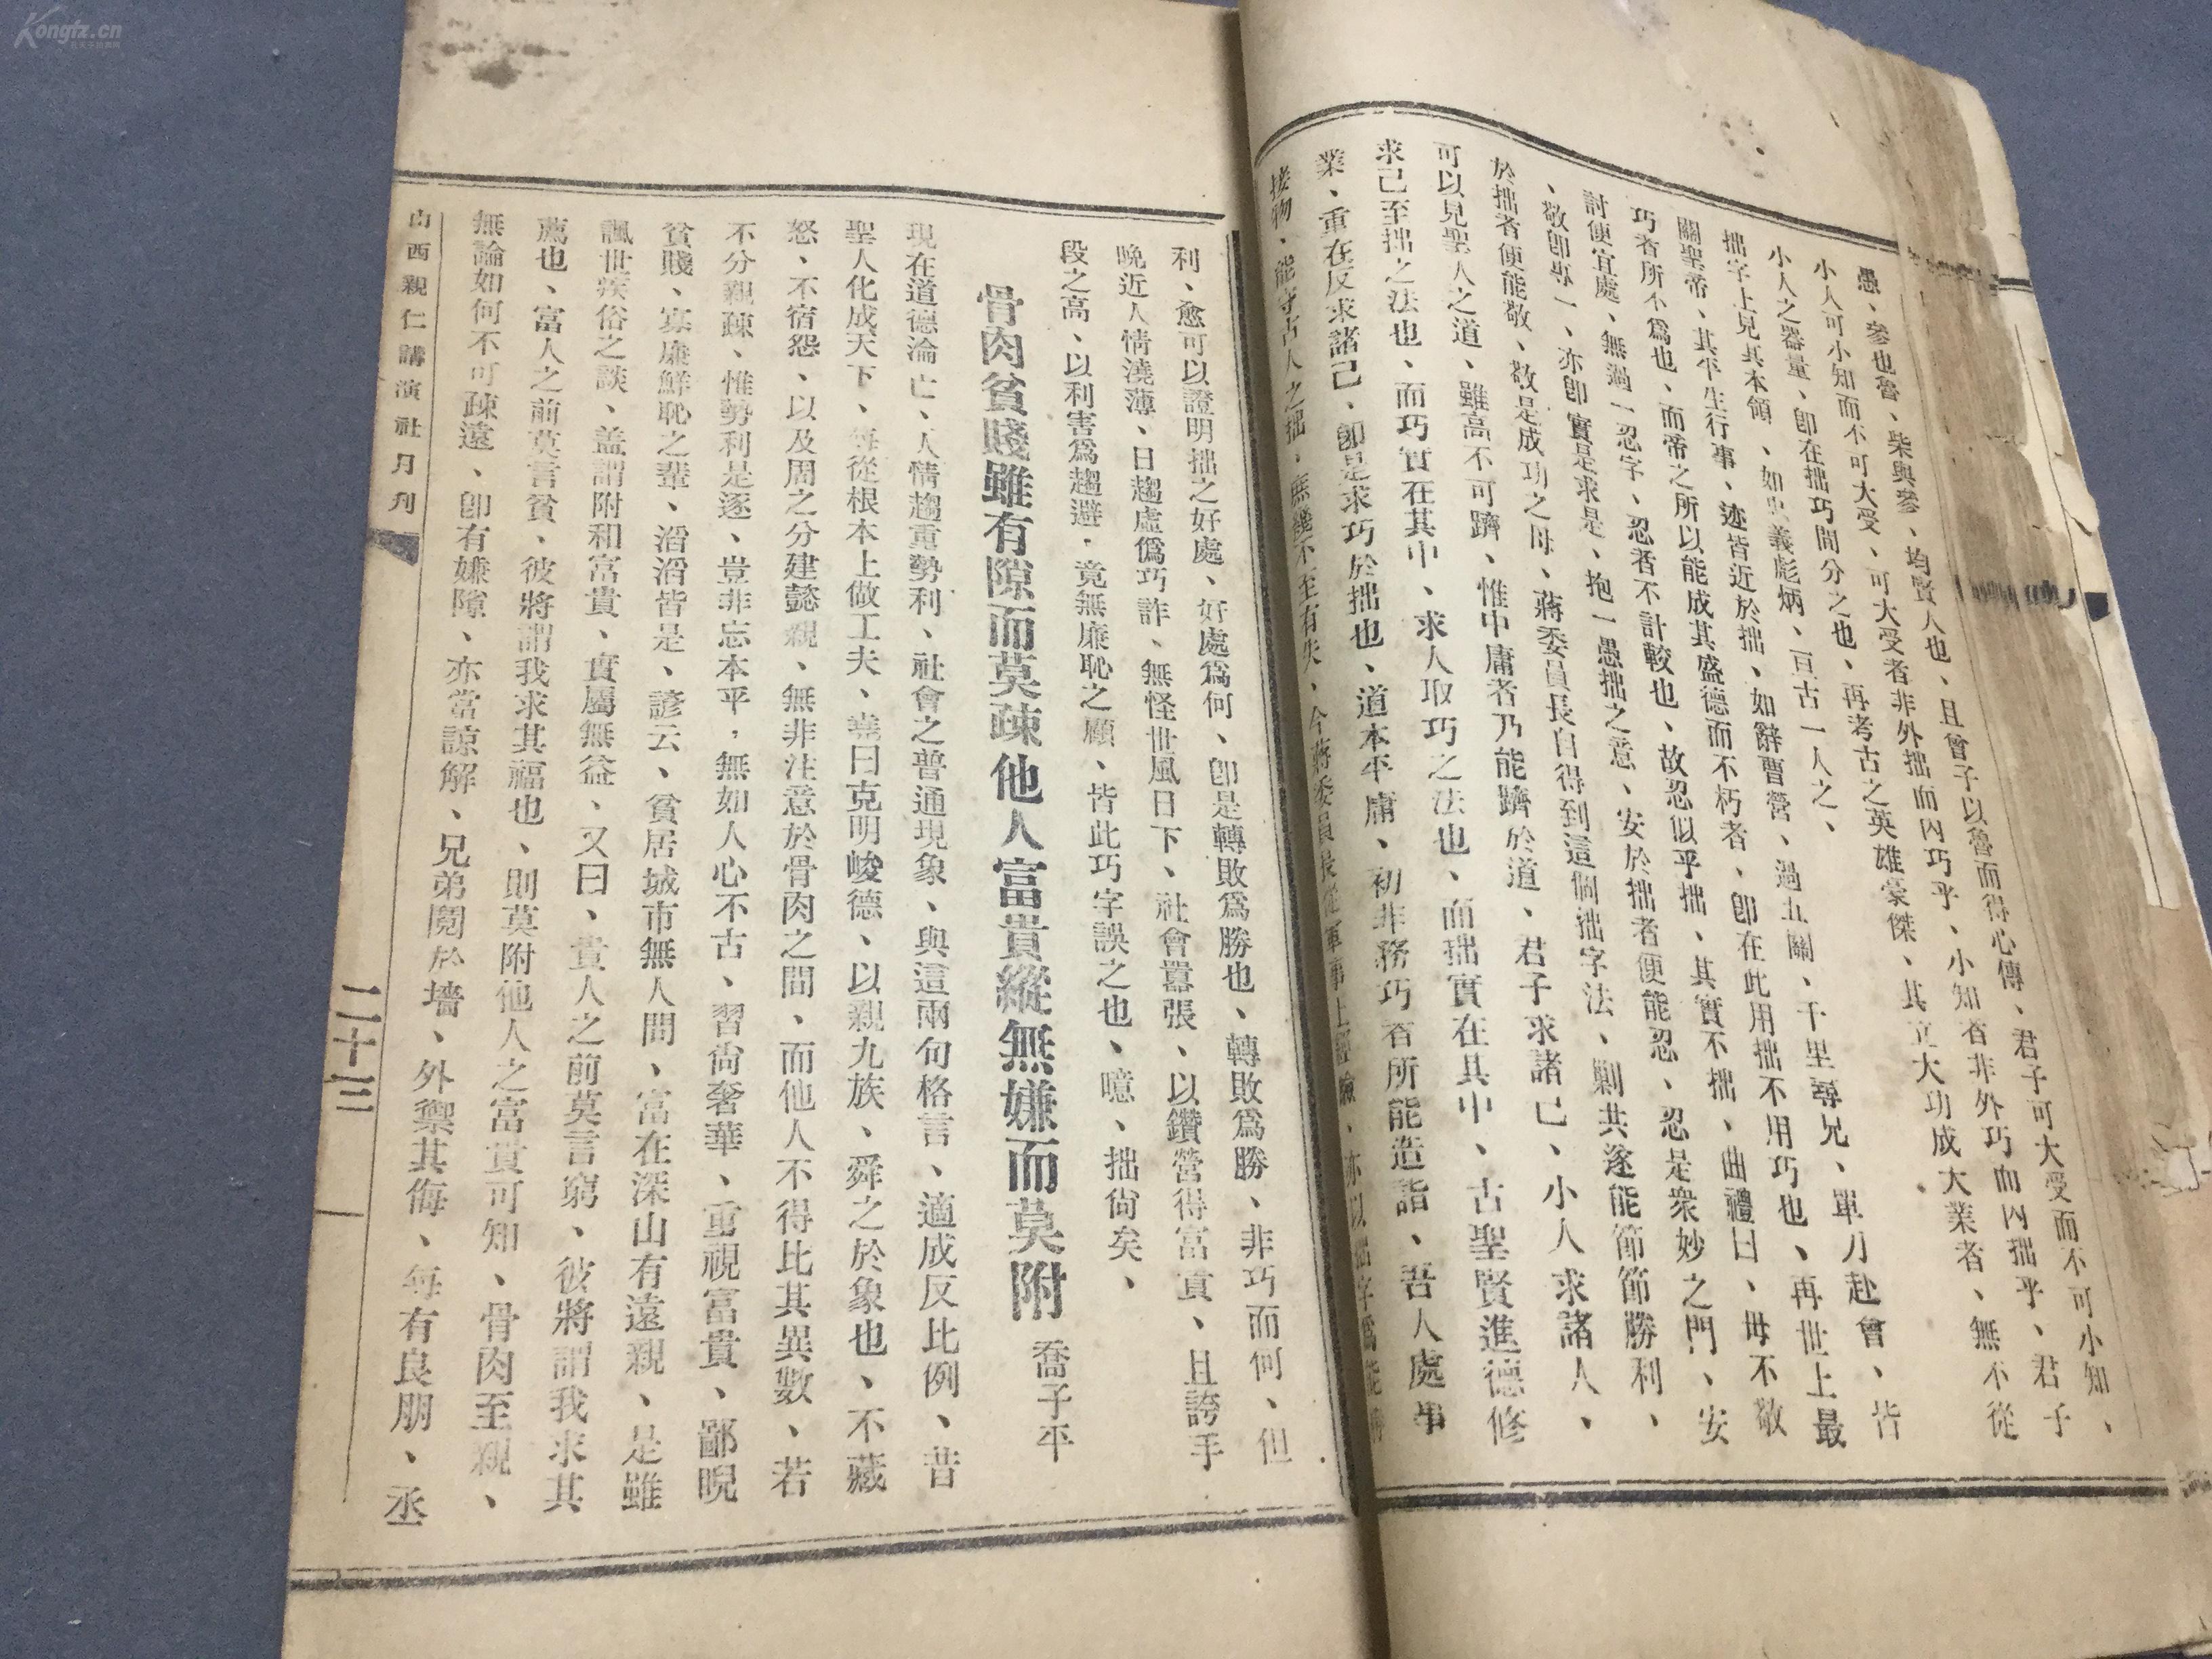 愚、參也魯、柴與參、均賢人也、且曾子以魯而得心傳、君子可大受而不可小知、
小人可小知而不可大受、可大受者非外拙而內巧乎、小知者非外巧而內拙乎、君子
小人之器量、卽在拙巧間分之也、再考古之英雄豪傑、其立大功成大業者、無不從
拙字上見其本領、如忠義彪炳、亘古一人之、
關聖帝、其平生行事、迹皆近於拙、如辭曹營、過五關、千里尋兄、單刀赴會、皆
巧者所不爲也、而帝之所以能成其盛德而不朽者、卽在此用拙不用巧也、再世上最
討便宜處、無過一忍字、忍者不計較也、故忍似乎拙、其實不拙、曲禮曰、毋不敬
、敬卽專一、亦卽實是求是、抱一愚拙之意、安於拙者便能忍、忍是衆妙之門、安
於拙者便能敬、敬是成功之母、蔣委員長自得到這個拙字法、剿共遂能節節勝利、
可以見聖人之道、雖高不可躋、惟中庸者乃能躋於道、君子求諸己、小人求諸人、
求己至拙之法也、而巧實在其中、求人取巧之法也、而拙實在其中、古聖賢進德修
業、重在反求諸己、卽是求巧於拙也、道本平庸、初非務巧者所能造詣、吾人處事
接物、能守古人之拙、庶幾不至有失、今蔣委員長從軍事上經驗、亦以拙字爲能轉
利、愈可以證明拙之好處、好處爲何、卽是轉敗爲勝也、轉敗爲勝、非巧而何、但
晚近人情澆薄、日趨虛僞巧詐、無怪世風日下、社會囂張、以鑽營得富貴、且誇手
段之高、以利害爲趨避、竟無廉恥之顧、皆此巧字誤之也、噫、拙尙矣、
骨肉貧賤雖有隙而莫疎他人富貴縱無嫌而莫附 喬子平
現在道德淪亡、人情趨重勢利、社會之普通現象、與這兩句格言、適成反比例、昔
聖人化成天下、每從根本上做工夫、堯曰克明峻德、以親九族、舜之於象也、不藏
怒、不宿怨、以及周之分建懿親、無非注意於骨肉之間、而他人不得比其異數、若
不分親疎、惟勢利是逐、豈非忘本乎，無如人心不古、習尙奢華、重視富貴、鄙睨
貧賤、寡廉鮮恥之輩、滔滔皆是、諺云、貧居城市無人問、富在深山有遠親、是雖
諷世疾俗之談、盖謂附和富貴、實屬無益、又曰、貴人之前莫言窮、彼將謂我求其
薦也、富人之前莫言貧、彼將謂我求其福也、則莫附他人之富貴可知、骨肉至親、
無論如何不可疎遠、卽有嫌隙、亦當諒解、兄弟鬩於墻、外禦其侮、每有良朋、烝
山西親仁講演社月刋
二十三
Kongfz.cn